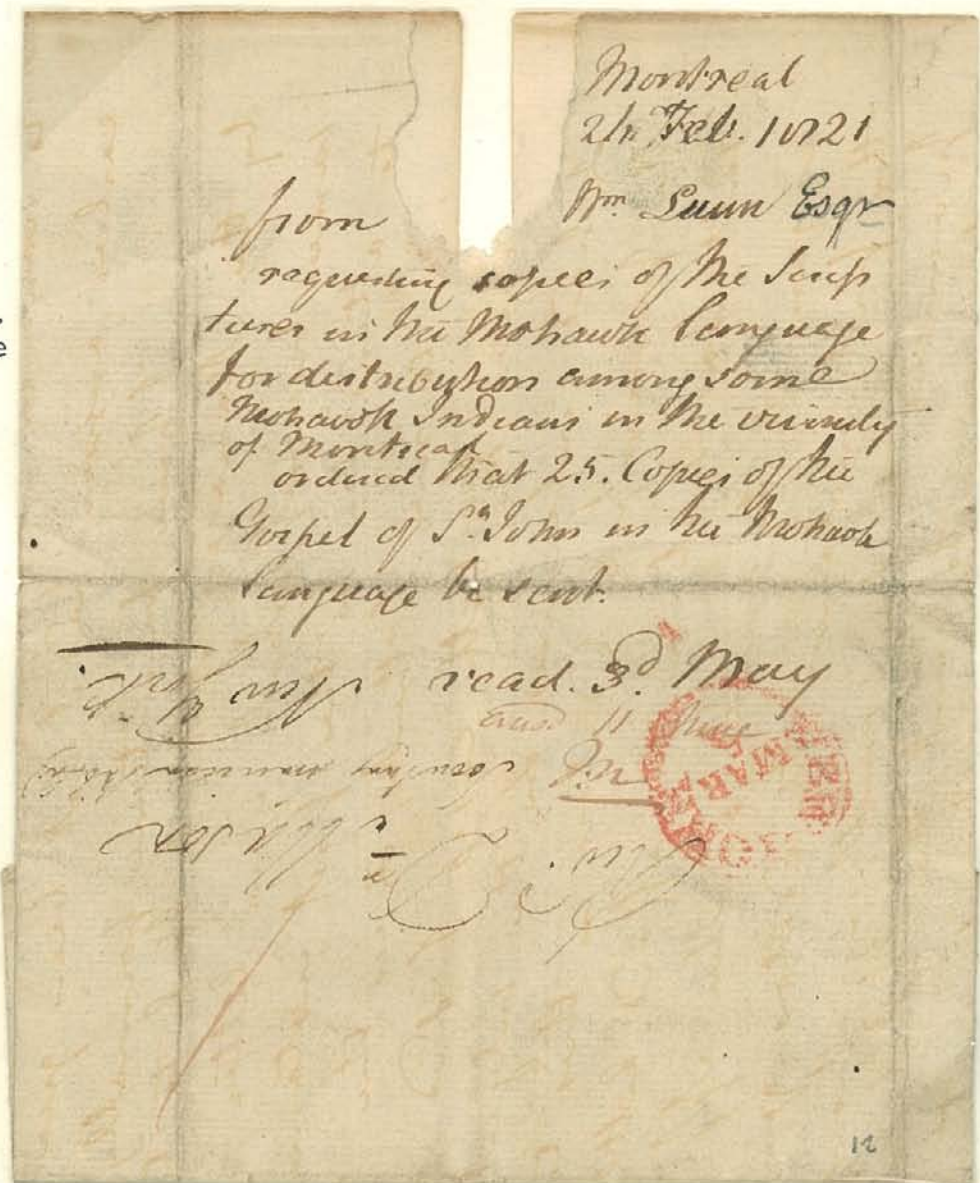 Montreal
Feb. 1821
from Wm. Lunn Esqr
requesting copies of the Scrip
tures in the Mohawk language
for distribution among some
Mohawk Indians in the vicinity
of Montreal
ordered that 25. Copies of the
Gospel of St. John in the Mohawk
language be sent.
read. 3d. May
ansd 11 June
New York.
MAR
Revd. Dr. 
12